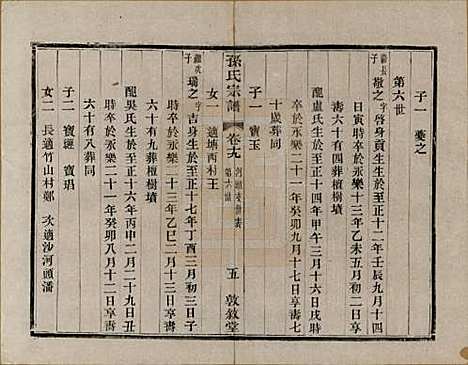 子一 夔之
第六世
夔長子 敬之 字啓身貢生生於至正十二年壬辰九月十四
日寅時卒於永樂十三年乙未五月初二日享
壽六十有四葬檀樹墳
配盧氏生於至正十四年甲午三月十六日戌時
卒於永樂二十一年癸卯九月十七日享壽七
十歲葬同
子一 寶玉
女一 適塘西村王
孫氏宗譜 卷六九 第六世 五 敦敘堂
次子 瑞之 字吉身生於至正十七年丁酉三月初三日子
時卒於永樂二十三年乙巳二月十三日享壽
六十有九葬檀樹墳
配吳氏生於至正十六年丙申二月二十九日丑
時卒於永樂二十一年癸卯八月十二日享壽
六十有八葬同
子二 寶璭 寶瑥
女二 長適竹山村鄭 次適沙河頭潘